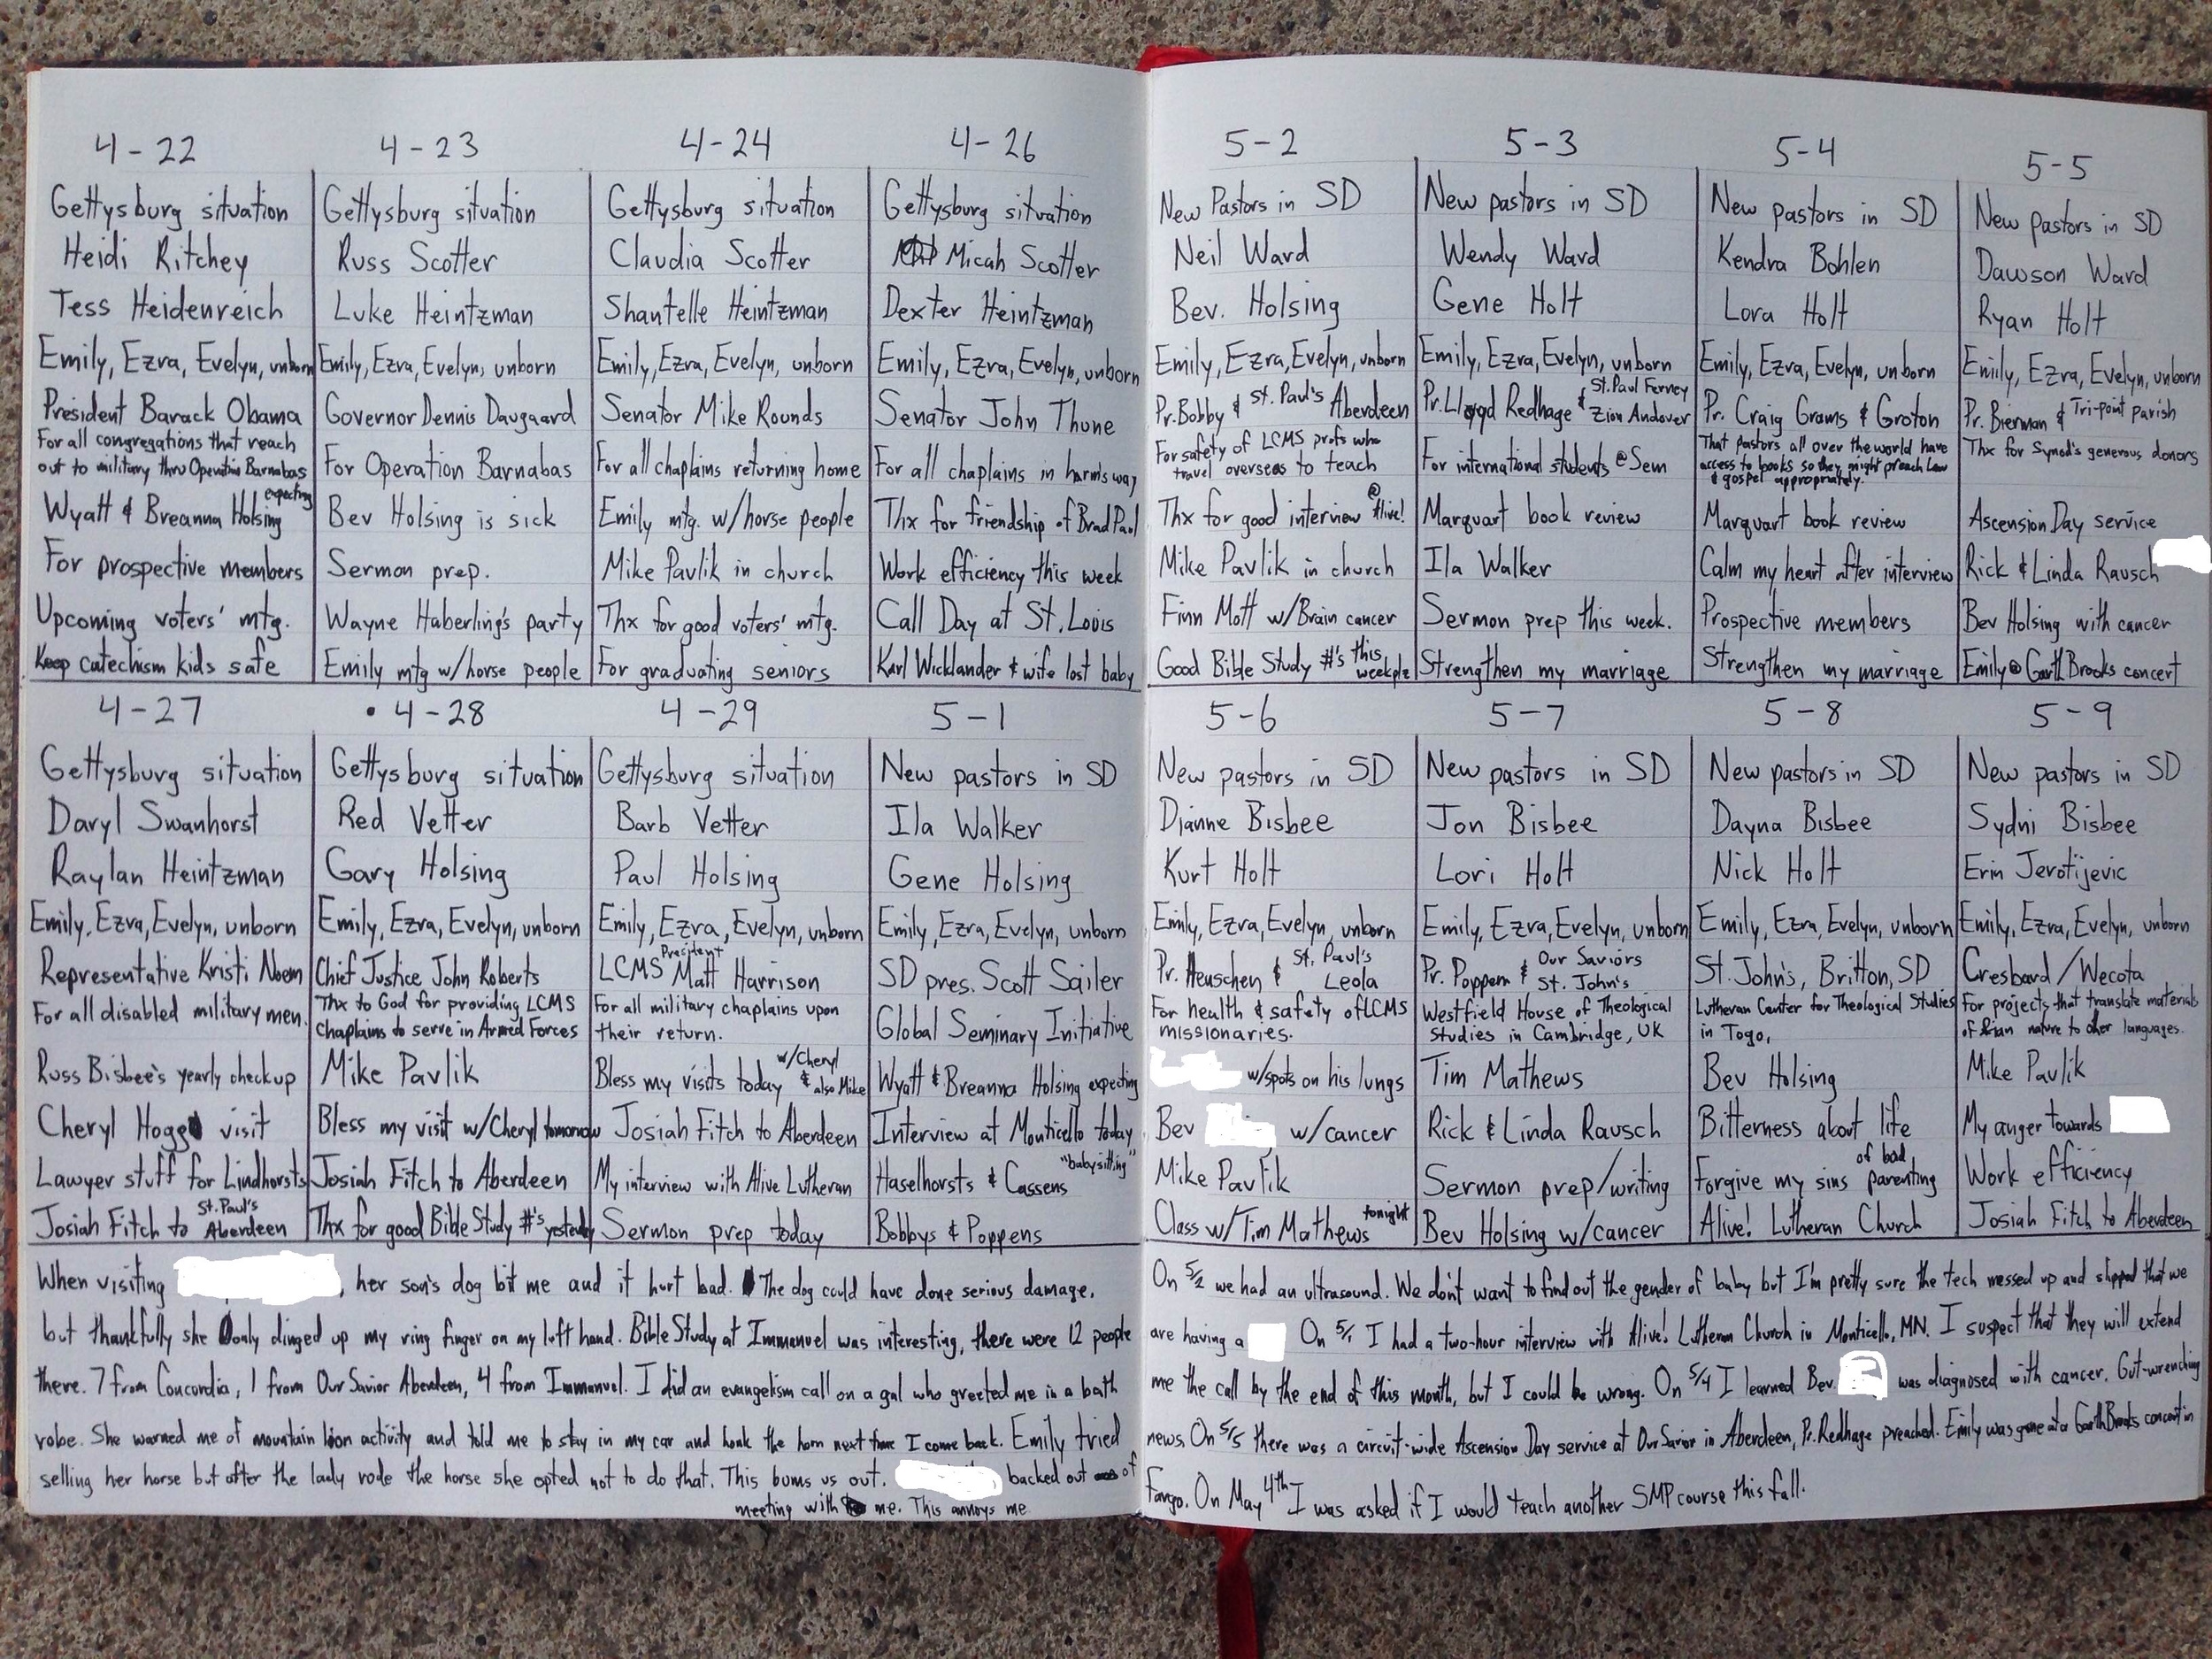 4-22
Gettysburg situation
Heidi Ritchey
Tess Heidenreich
Emily, Ezra, Evelyn, unborn
President Barack Obama
For all congregations that reach
out to military thru Operation Barnabas
expecting
Wyatt & Breanna Holsing
For prospective members
Upcoming voters' mtg.
Keep catechism kids safe
4-23
Gettysburg situation
Russ Scotter
Luke Heintzman
Emily, Ezra, Evelyn, unborn
Governor Dennis Daugaard
For Operation Barnabas
Bev Holsing is sick
Sermon prep.
Wayne Haberling's party
Emily mtg w/horse people
4-24
Gettysburg situation
Claudia Scotter
Shantelle Heintzman
Emily, Ezra, Evelyn, unborn
Senator Mike Rounds
For all chaplains returning home
Emily mtg. w/horse people
Mike Pavlik in church
Thx for good voters' mtg.
For graduating seniors
4-26
Gettysburg situation
Micah Scotter
Dexter Heintzman
Emily, Ezra, Evelyn, unborn
Senator John Thune
For all chaplains in harm's way
Thx for friendship of Brad Paul
Work efficiency this week
Call Day at St. Louis
Karl Wicklander & wife lost baby
4-27
Gettysburg situation
Daryl Swanhorst
Raylan Heintzman
Emily, Ezra, Evelyn, unborn
Representative Kristi Noem
For all disabled military men.
Russ Bisbee's yearly checkup
Cheryl Hogg visit
Lawyer stuff for Lindhorsts
St. Paul's
Josiah Fitch to Aberdeen
• 4-28
Gettysburg situation
Red Vetter
Gary Holsing
Emily, Ezra, Evelyn, unborn
Chief Justice John Roberts
Thx to God for providing LCMS
Chaplains to serve in Armed Forces
Mike Pavlik
Bless my visit w/Cheryl tomorrow
Josiah Fitch to Aberdeen
Thx for good Bible Study #'s yesterday
4-29
Gettysburg situation
Barb Vetter
Paul Holsing
Emily, Ezra, Evelyn, unborn
President
LCMS Matt Harrison
For all military chaplains upon
their return.
w/Cheryl
Bless my visits today & also Mike
Josiah Fitch to Aberdeen
My interview with Alive Lutheran
Sermon prep today
5-1
New pastors in SD
Ila Walker
Gene Holsing
Emily, Ezra, Evelyn, unborn
SD pres. Scott Sailer
Global Seminary Initiative
Wyatt & Breanna Holsing expecting
Interview at Monticello today
"babysitting"
Haselhorsts & Cassens
Bobbys & Poppens
When visiting , her son's dog bit me and it hurt bad. The dog could have done serious damage,
but thankfully she only dinged up my ring finger on my left hand. Bible Study at Immanuel was interesting, there were 12 people
there. 7 from Concordia, 1 from Our Savior Aberdeen, 4 from Immanuel. I did an evangelism call on a gal who greeted me in a bath
robe. She warned me of mountain lion activity and told me to stay in my car and honk the horn next time I come back. Emily tried
selling her horse but after the lady rode the horse she opted not to do that. This bums us out. backed out of
meeting with me. This annoys me.
5-2
New Pastors in SD
Neil Ward
Bev. Holsing
Emily, Ezra, Evelyn, unborn
Pr. Bobby & St. Paul's Aberdeen
For safety of LCMS profs who
travel overseas to teach
Thx for good interview @ Alive!
Mike Pavlik in church
Finn Mott w/Brain cancer
Good Bible Study #'s this weekple
5-3
New pastors in SD
Wendy Ward
Gene Holt
Emily, Ezra, Evelyn, unborn
Pr. Lloyd Redhage & St. Paul Ferney
Zion Andover
For international students @ Sem
Marquart book review
Ila Walker
Sermon prep this week.
Strengthen my marriage
5-4
New pastors in SD
Kendra Bohlen
Lora Holt
Emily, Ezra, Evelyn, unborn
Pr. Craig Grams & Groton
That pastors all over the world have
access to books so they might preach Law
& gospel appropriately.
Marquart book review
Calm my heart after interview
Prospective members
Strengthen my marriage
5-5
New pastors in SD
Dawson Ward
Ryan Holt
Emily, Ezra, Evelyn, unborn
Pr. Bierman & Tri-point parish
Thx for Synod's generous donors
Ascension Day service
Rick & Linda Rausch
Bev Holsing with cancer
Emily @ Garth Brooks concert
5-6
New pastors in SD
Dianne Bisbee
Kurt Holt
Emily, Ezra, Evelyn, unborn
Pr. Heuschen & St. Paul's
Leola
For health & safety of LCMS
missionaries.
w/spots on his lungs
Bev w/cancer
Mike Pavlik
Class w/Tim Mathews tonight
5-7
New pastors in SD
Jon Bisbee
Lori Holt
Emily, Ezra, Evelyn, unborn
Pr. Poppen & Our Saviors
St. John's
Westfield House of Theological
Studies in Cambridge, UK
Tim Mathews
Rick & Linda Rausch
Sermon prep/writing
Bev Holsing w/cancer
5-8
New pastors in SD
Dayna Bisbee
Nick Holt
Emily, Ezra, Evelyn, unborn
St. John's, Britton, SD
Lutheran Center for Theological Studies
in Togo.
Bev Holsing
Bitterness about life
of bad
Forgive my sins parenting
Alive! Lutheran Church
5-9
New pastors in SD
Sydni Bisbee
Erin Jerotijevic
Emily, Ezra, Evelyn, unborn
Cresbard/Wecota
For projects that translate materials
of nature to other languages.
Mike Pavlik
My anger towards
Work efficiency
Josiah Fitch to Aberdeen
On 5/2 we had an ultrasound. We don't want to find out the gender of baby but I'm pretty sure the tech messed up and slipped that we
are having a On 5/1 I had a two-hour interview with Alive! Lutheran Church in Monticello, MN. I suspect that they will extend
me the call by the end of this month, but I could be wrong. On 5/4 I learned Bev. was diagnosed with cancer. Gut-wrenching
news. On 5/5 there was a circuit-wide Ascension Day service at Our Savior in Aberdeen, Pr. Redhage preached. Emily was gone at a Garth Brooks concert in
Fargo. On May 4th I was asked if I would teach another SMP course this fall.